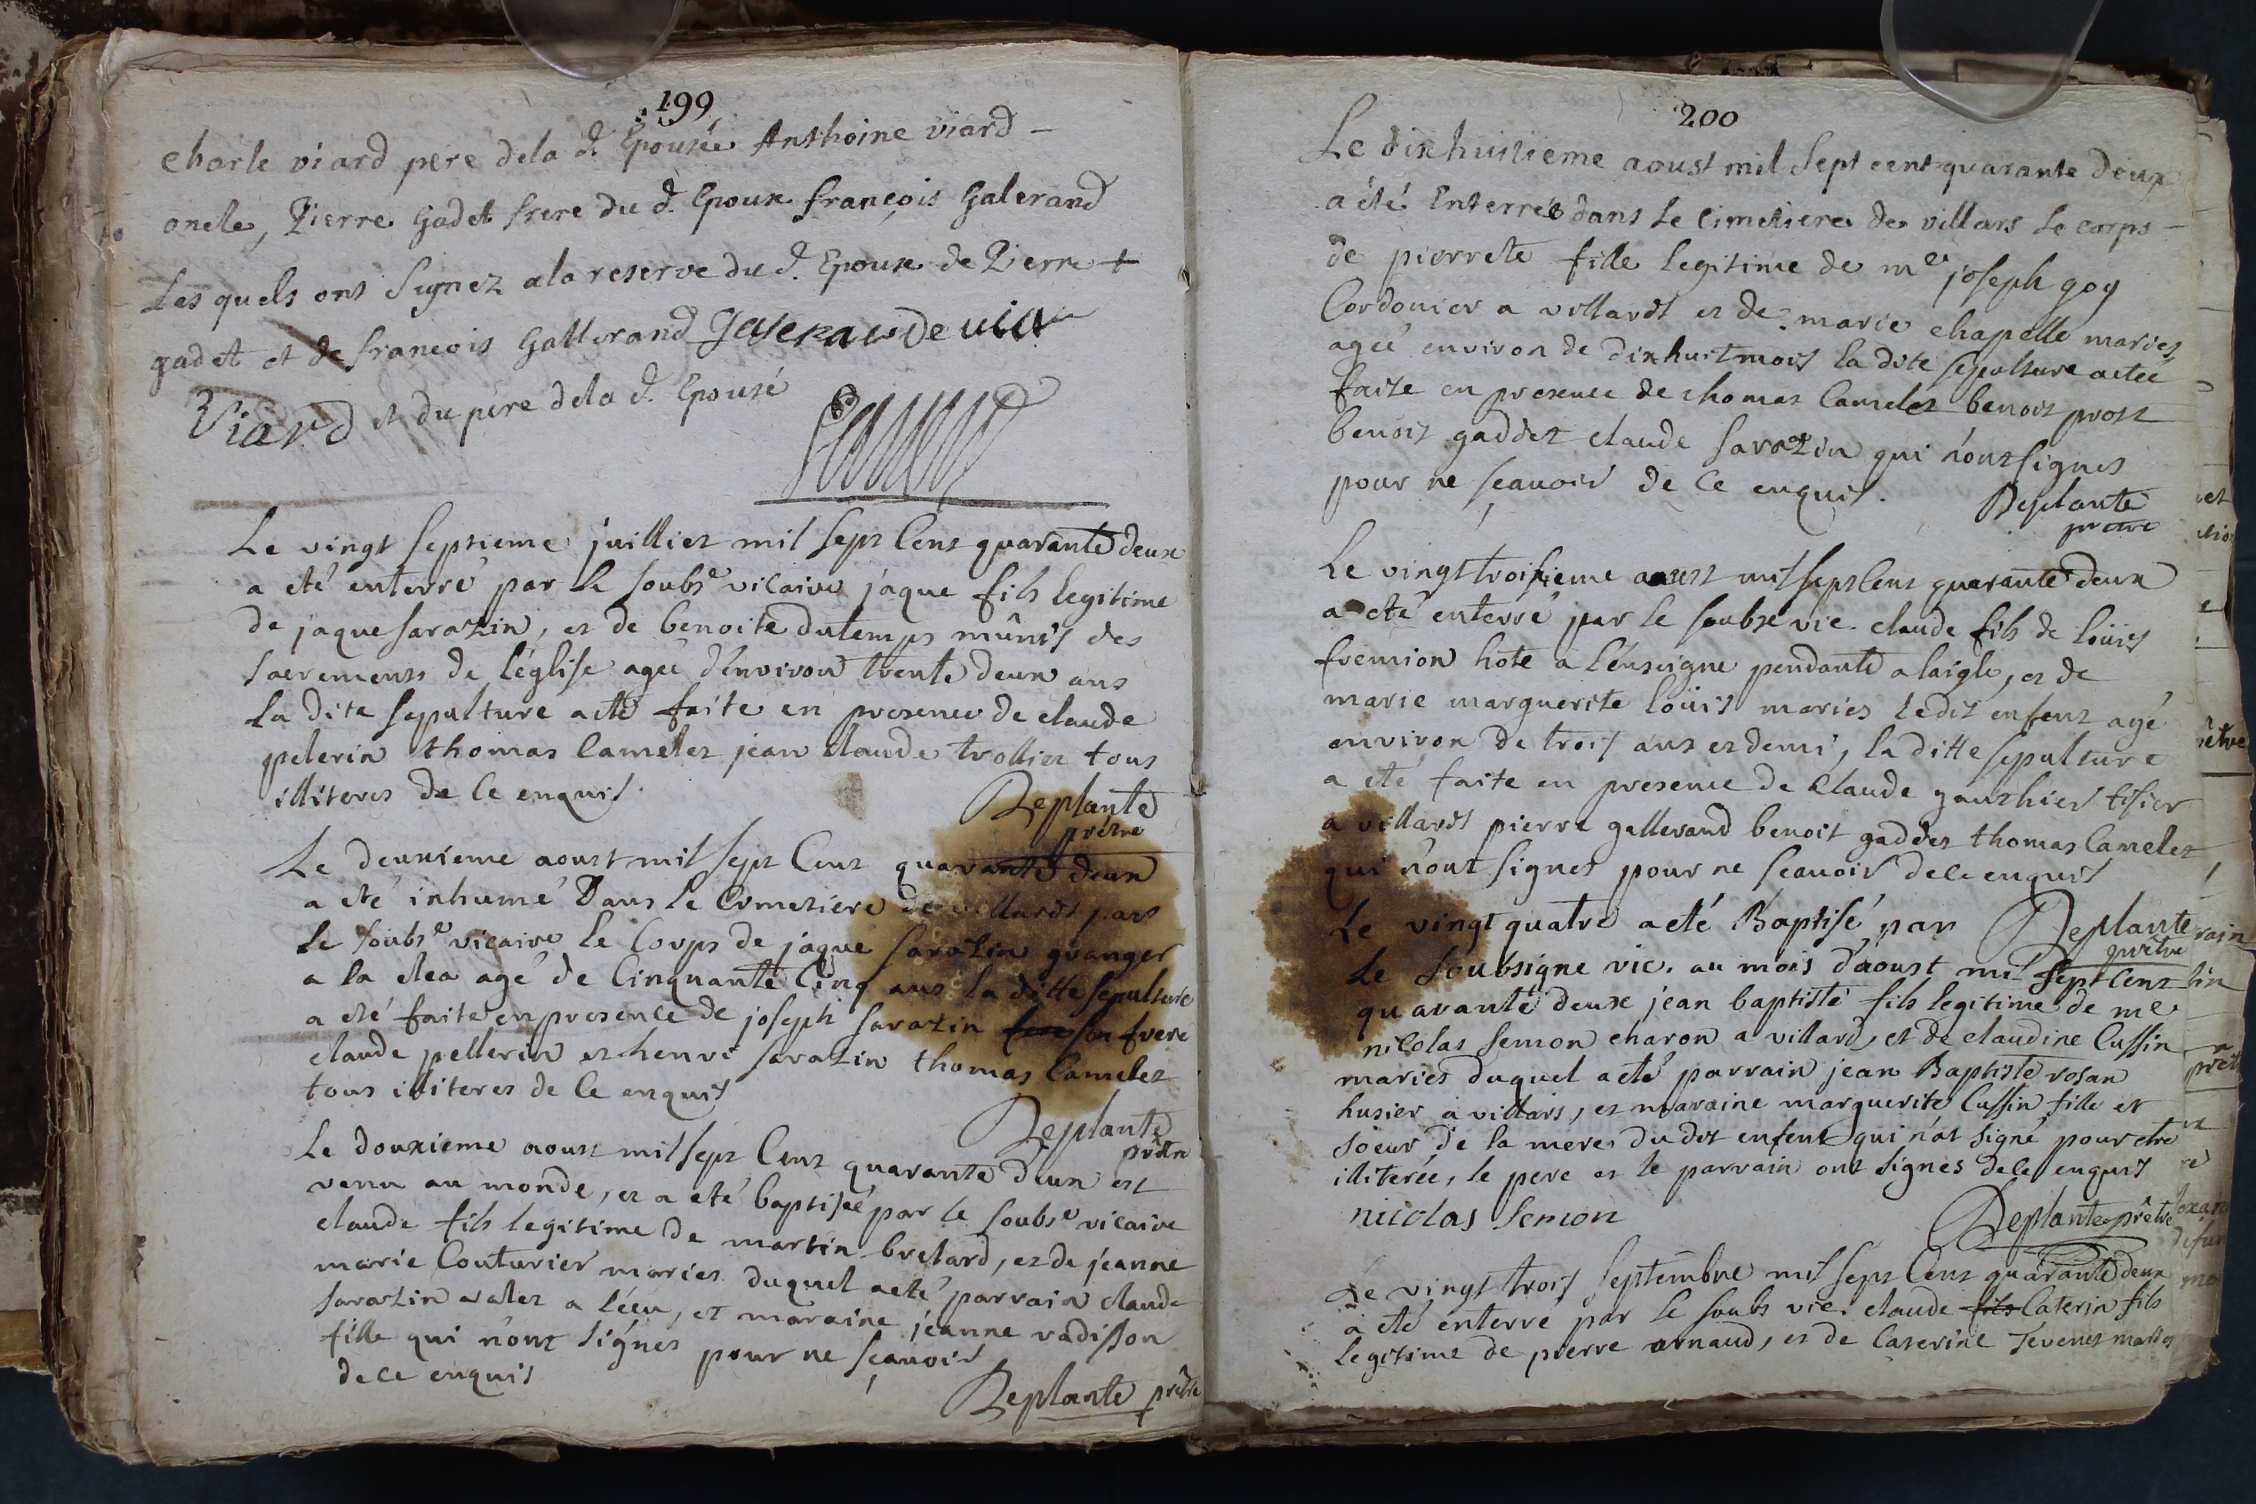 199
charle viard pere dela d. Epousée Anthoine viard -
oncle, Pierre gadet frere du d. Epoux françois galerand
Les quels ont signez ala reserve du d. Epoux de Pierre +
gadet et de françois gallerand
Viard et du père dela d. Epousé
Le vingt septieme juilliet mil sept Cent quarante deux
a eté enterré par le soubs.e vicaire jaque fils legitime
de jaque sarazin, et de benoite dutemps mûnis des
sacrements de l'église agée d'environ trente deux ans
La dite sepulture a eté faite en presence de claude
pelerin thomas Camelet jean claude trollier tous
illiteres de Ce enquis.
Deplante
prêtre
Le deuxieme aoust mil sept Cent quarante deux
a eté inhumé Dans le Cimetiere de villards par
le soubs.e vicaire le Corps de jaque sarazin granger
a la elea agé de Cinquante Cinq ans la ditte sepulture
a eté faite en presence de joseph sarazin son frere
claude pellerin et henri sarazin thomas Camelet
tous iliteres de Ce enquis
Deplante
prêtre
Le douxieme aoust mil sept Cent quarante deux est
venu au monde, et a eté baptiseé par le soubs.e vicaire
claude fils legitime de martin brelard, et de jeanne
marie Couturier maries duquel a eté parrain claude
sarazin valet a l'écu, et maraine jeanne vadisson
fille qui n'ont signes pour ne sçavoir
de ce enquis
Deplante prêtre
200
Le dixhuitieme aoust mil sept cent quarante deux
a été Enterrée dans le Cimetiere de villars le corps -
de pierrete fille legitime de me joseph goy
Cordonier a villards et de marie chapelle maries
ageé environ de dixhuit mois la dite sepulture a eteé
faite en presence de thomas Camelet benoit prost
benoit gaddet claude sarazin qui n'ont signes
pour ne sçavoir de Ce enquis.
Deplante
prêtre
Le vingt troisieme aoust mil sept Cent quarante deux
a eté enterré par le soubse vic. claude fils de loüis
fremion hote a l'énseigne pendante a laigle, et de
marie marguerite loüis maries ledit enfent agé
environ de trois ans et demi, la ditte sepulture
a eté faite en presence de Claude gauthier tisier
a villards pierre gallerand benoit gaddet thomas Camelet
qui n'ont signes pour ne scavoir de ce enquis
Deplante
prêtre
Le vingt quatre a eté Baptisé par
Le soubsigne vic. au mois d'aoust mil sept Cent
quarante deux jean baptiste fils legitime de me
nicolas semon charon a villard, et de claudine Cussin
maries duquel a eté parrain jean Baptiste rosan
husier a villars, et maraine marguerite Cussin fille et
soeur de la mere du dit enfent qui n'at signé pour etre
illiterée, le pere et le parrain ont signes de ce enquis
nicolas semon
Deplante prêtre
Le vingt trois septembre mil sept Cent quarante deux
a eté enterré par le soubs vic. claude fils Caterin fils
legitime de pierre arnaud, et de Caterine Tevenet maries